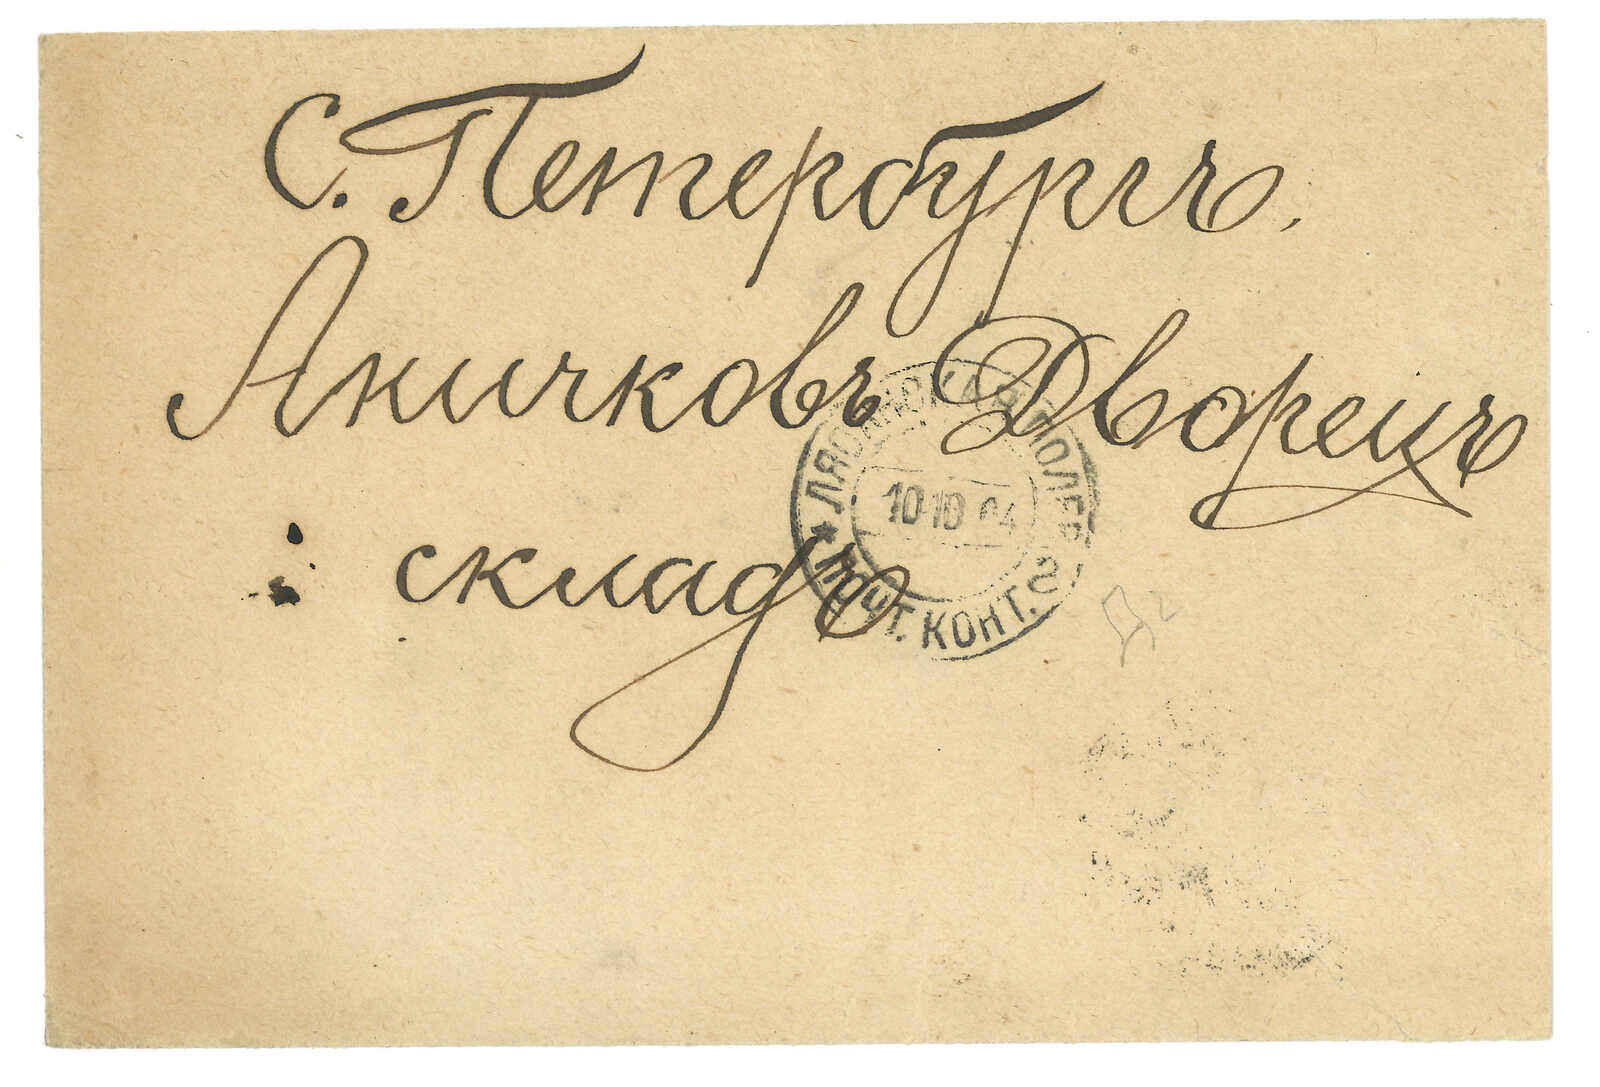 С. Петербургъ.
Аничковъ Дворецъ
складъ
10 10 04
ПОЧТ. КОНТ. 2